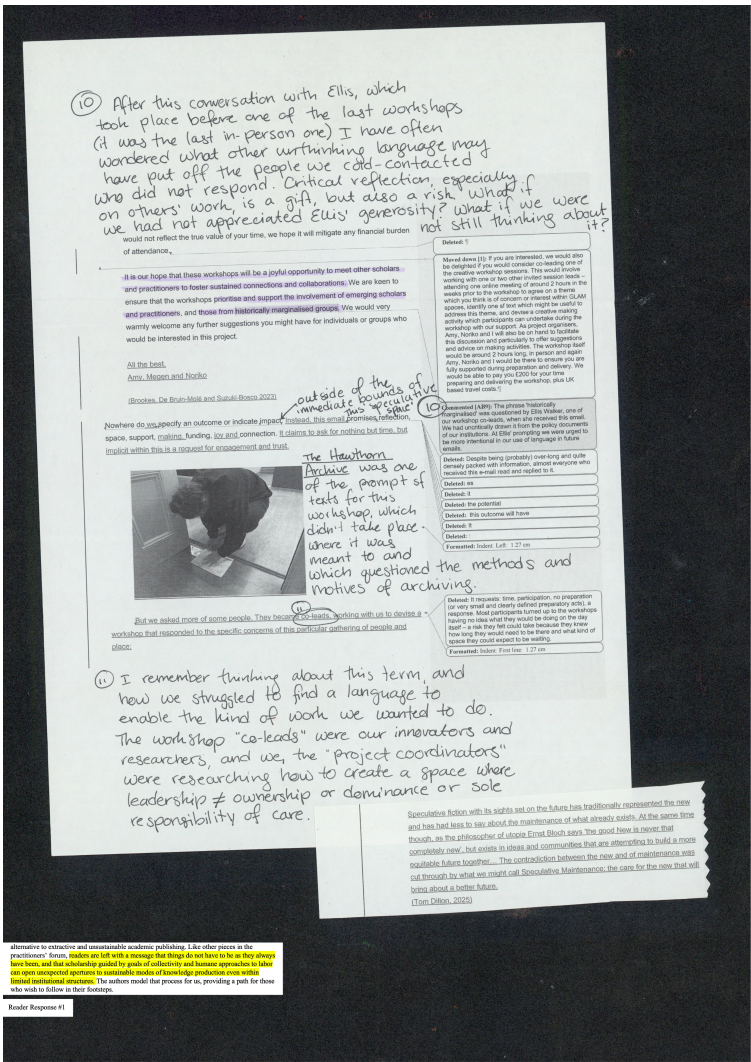 10 After this conversation with Ellis, which
took place before one of the last workshops
(it was the last in-person one) I have often
wondered what other unthinking language may
have put off the people we cold-contacted
who did not respond. Critical reflection, especially
on others' work, is a gift, but also a risk. What if
we had not appreciated Ellis' generosity? What if we were
not still thinking about
it?
would not reflect the true value of your time, we hope it will mitigate any financial burden
of attendance.
It is our hope that these workshops will be a joyful opportunity to meet other scholars
and practitioners to foster sustained connections and collaborations. We are keen to
ensure that the workshops prioritise and support the involvement of emerging scholars
and practitioners, and those from historically marginalised groups. We would very
warmly welcome any further suggestions you might have for individuals or groups who
would be interested in this project.
All the best,
Amy, Megen and Noriko
(Brookes, De Bruin-Molé and Suzuki-Bosco 2023)
outside of the
immediate bounds of
this "speculative
space"
Nowhere do we specify an outcome or indicate impact. Instead, this email promises reflection,
space, support, making, funding, joy and connection. It claims to ask for nothing but time, but
implicit within this is a request for engagement and trust.
The Hawthorn
Archive was one
of the prompt sf
texts for this
workshop, which
didn't take place
where it was
meant to and
which questioned the methods and
motives of archiving.
11
But we asked more of some people. They became co-leads, working with us to devise a
workshop that responded to the specific concerns of this particular gathering of people and
place:
Deleted: ¶
Moved down [1]: If you are interested, we would also
be delighted if you would consider co-leading one of
the creative workshop sessions. This would involve
working with one or two other invited session leads –
attending one online meeting of around 2 hours in the
weeks prior to the workshop to agree on a theme
which you think is of concern or interest within GLAM
spaces, identify one sf text which might be useful to
address this theme, and devise a creative making
activity which participants can undertake during the
workshop with our support. As project organisers,
Amy, Noriko and I will also be on hand to facilitate
this discussion and particularly to offer suggestions
and advice on making activities. The workshop itself
would be around 2 hours long, in person and again
Amy, Noriko and I would be there to ensure you are
fully supported during preparation and delivery. We
would be able to pay you £200 for your time
preparing and delivering the workshop, plus UK
based travel costs.¶
10
Commented [AB9]: The phrase 'historically
marginalised' was questioned by Ellis Walker, one of
our workshop co-leads, when she received this email.
We had uncritically drawn it from the policy documents
of our institutions. At Ellis' prompting we were urged to
be more intentional in our use of language in future
emails.
Deleted: Despite being (probably) over-long and quite
densely packed with information, almost everyone who
received this e-mail read and replied to it.
Deleted: as
Deleted: it
Deleted: the potential
Deleted: this outcome will have
Deleted: It
Deleted: :
Formatted: Indent: Left: 1.27 cm
Deleted: It requests: time, participation, no preparation
(or very small and clearly defined preparatory acts), a
response. Most participants turned up to the workshops
having no idea what they would be doing on the day
itself – a risk they felt could take because they knew
how long they would need to be there and what kind of
space they could expect to be waiting.
Formatted: Indent: First line: 1.27 cm
11 I remember thinking about this term, and
how we struggled to find a language to
enable the kind of work we wanted to do.
The workshop "co-leads" were our innovators and
researchers, and we, the "project coordinators"
were researching how to create a space where
leadership ≠ ownership or dominance or sole
responsibility of care.
Speculative fiction with its sights set on the future has traditionally represented the new
and has had less to say about the maintenance of what already exists. At the same time
though, as the philosopher of utopia Ernst Bloch says 'the good New is never that
completely new', but exists in ideas and communities that are attempting to build a more
equitable future together… The contradiction between the new and of maintenance was
cut through by what we might call Speculative Maintenance: the care for the new that will
bring about a better future.
(Tom Dillon, 2025)
alternative to extractive and unsustainable academic publishing. Like other pieces in the
practitioners' forum, readers are left with a message that things do not have to be as they always
have been, and that scholarship guided by goals of collectivity and humane approaches to labor
can open unexpected apertures to sustainable modes of knowledge production even within
limited institutional structures. The authors model that process for us, providing a path for those
who wish to follow in their footsteps.
Reader Response #1